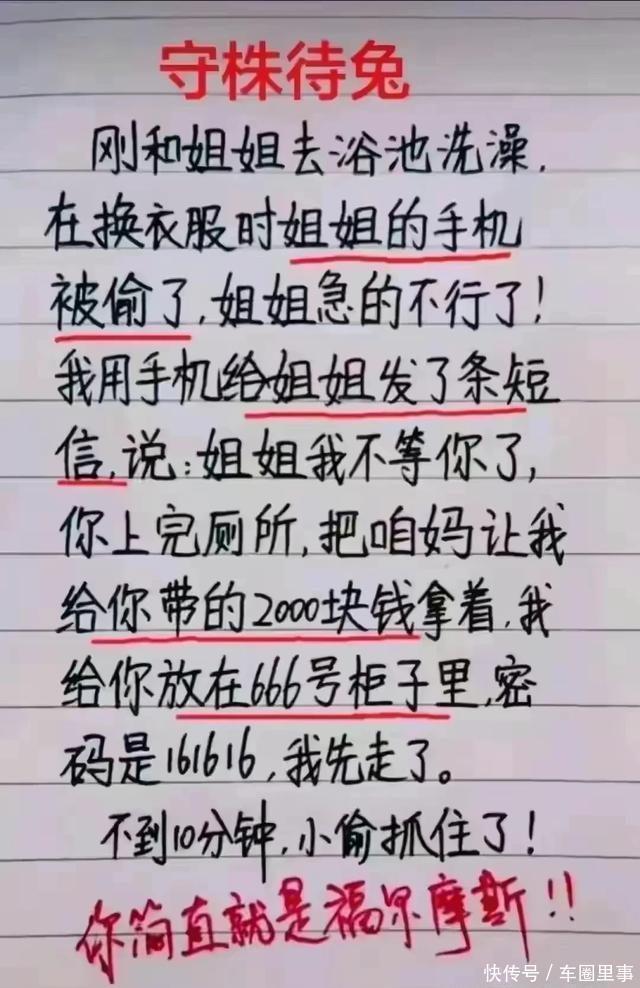 守株待兔
刚和姐姐去浴池洗澡,
在换衣服时姐姐的手机
被偷了,姐姐急的不行了!
我用手机给姐姐发了条短
信,说:姐姐我不等你了,
你上完厕所,把咱妈让我
给你带的2000块钱拿着,我
给你放在666号柜子里,密
码是161616,我先走了。
不到10分钟,小偷抓住了!
你简直就是福尔摩斯!!
快传号/车圈里事